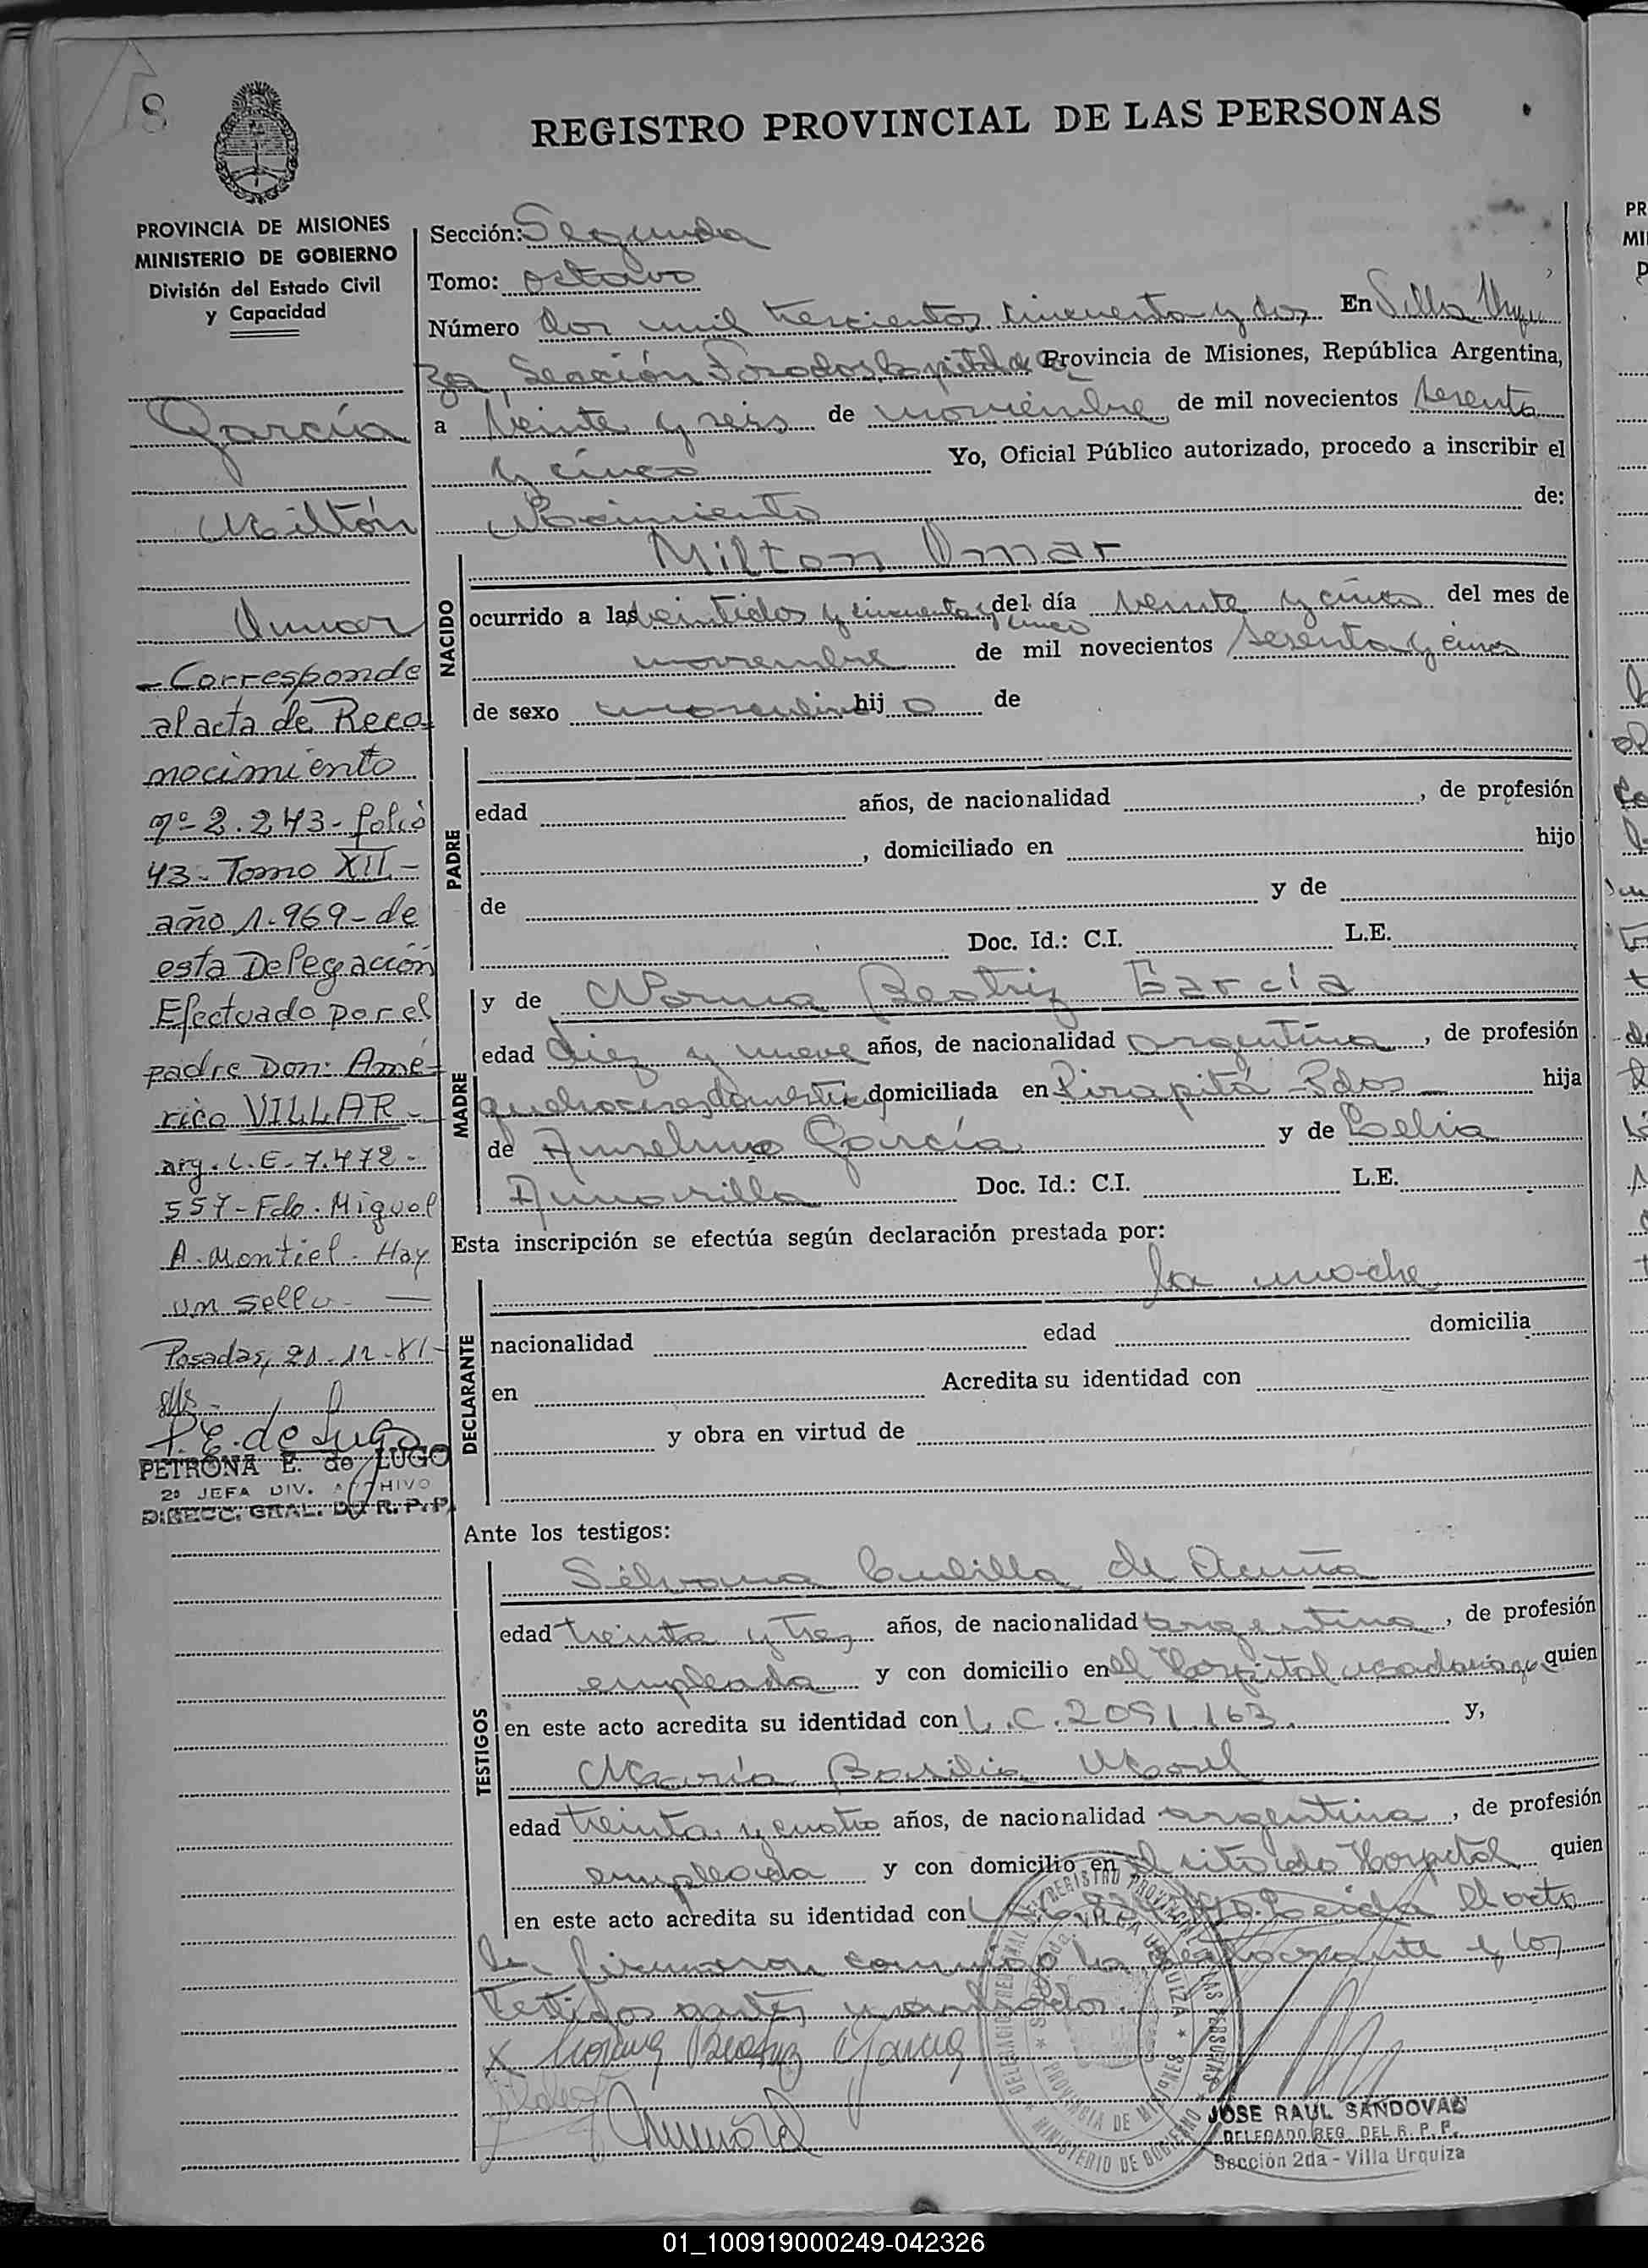 8
REGISTRO PROVINCIAL DE LAS PERSONAS
PROVINCIA DE MISIONES
MINISTERIO DE GOBIERNO
División del Estado Civil
y Capacidad
García
Miltón
Omar
- Corresponde
al acta de Reco-
nocimiento
nº 2.243 - folio
43 - Tomo XII -
año 1.969 - de
esta Delegación
Efectuado por el
padre Don: Amé-
rico VILLAR -
arg. L.E - 7.472 -
557 - Fdo. Miguel
A. Montiel - Hay
un sello -
Posadas, 21-12-81-
P. E. de Lugo
PETRONA E. de LUGO
2º JEFA DIV. ARCHIVO
DIRECC. GRAL. DEL R. P. P.
Sección: Segunda
Tomo: octavo
Número dos mil trescientos cincuenta y dos En Villa Urqui
za, Sección Posadas, Capital de Provincia de Misiones, República Argentina,
a veinte y seis de noviembre de mil novecientos sesenta
y cinco Yo, Oficial Público autorizado, procedo a inscribir el
Nacimiento de:
NACIDO
Milton Omar
ocurrido a las veintidos y cincuenta y cinco del día veinte y cinco del mes de
noviembre de mil novecientos sesenta y cinco
de sexo masculino hijo de
PADRE
edad años, de nacionalidad , de profesión
, domiciliado en hijo
de y de
Doc. Id.: C.I. L.E.
MADRE
y de Norma Beatriz García
edad diez y nueve años, de nacionalidad argentina, de profesión
quehaceres domésticos domiciliada en Pirapitá - Pdas hija
de Anselmo García y de Celia
Amarilla Doc. Id.: C.I. L.E.
Esta inscripción se efectúa según declaración prestada por:
DECLARANTE
la madre
nacionalidad edad domicilia
en Acredita su identidad con
y obra en virtud de
Ante los testigos:
TESTIGOS
Silvana de Acuña
edad treinta y tres años, de nacionalidad argentina, de profesión
empleada y con domicilio en el Hospital quien
en este acto acredita su identidad con L.C. 2091.163. y,
María Basilia
edad treinta y cuatro años, de nacionalidad argentina, de profesión
empleada y con domicilio en el citado Hospital quien
en este acto acredita su identidad con Leida el acta
la firmaron conmigo la y los
testigos
x Norma Beatriz García
DELEGACION REGIONAL DEL REGISTRO PROVINCIAL DE LAS PERSONAS
MINISTERIO DE GOBIERNO
VILLA URQUIZA
PROVINCIA DE MISIONES
JOSE RAUL SANDOVAL
DELEGADO REG. DEL R. P. P.
Sección 2da - Villa Urquiza
01_100919000249-042326